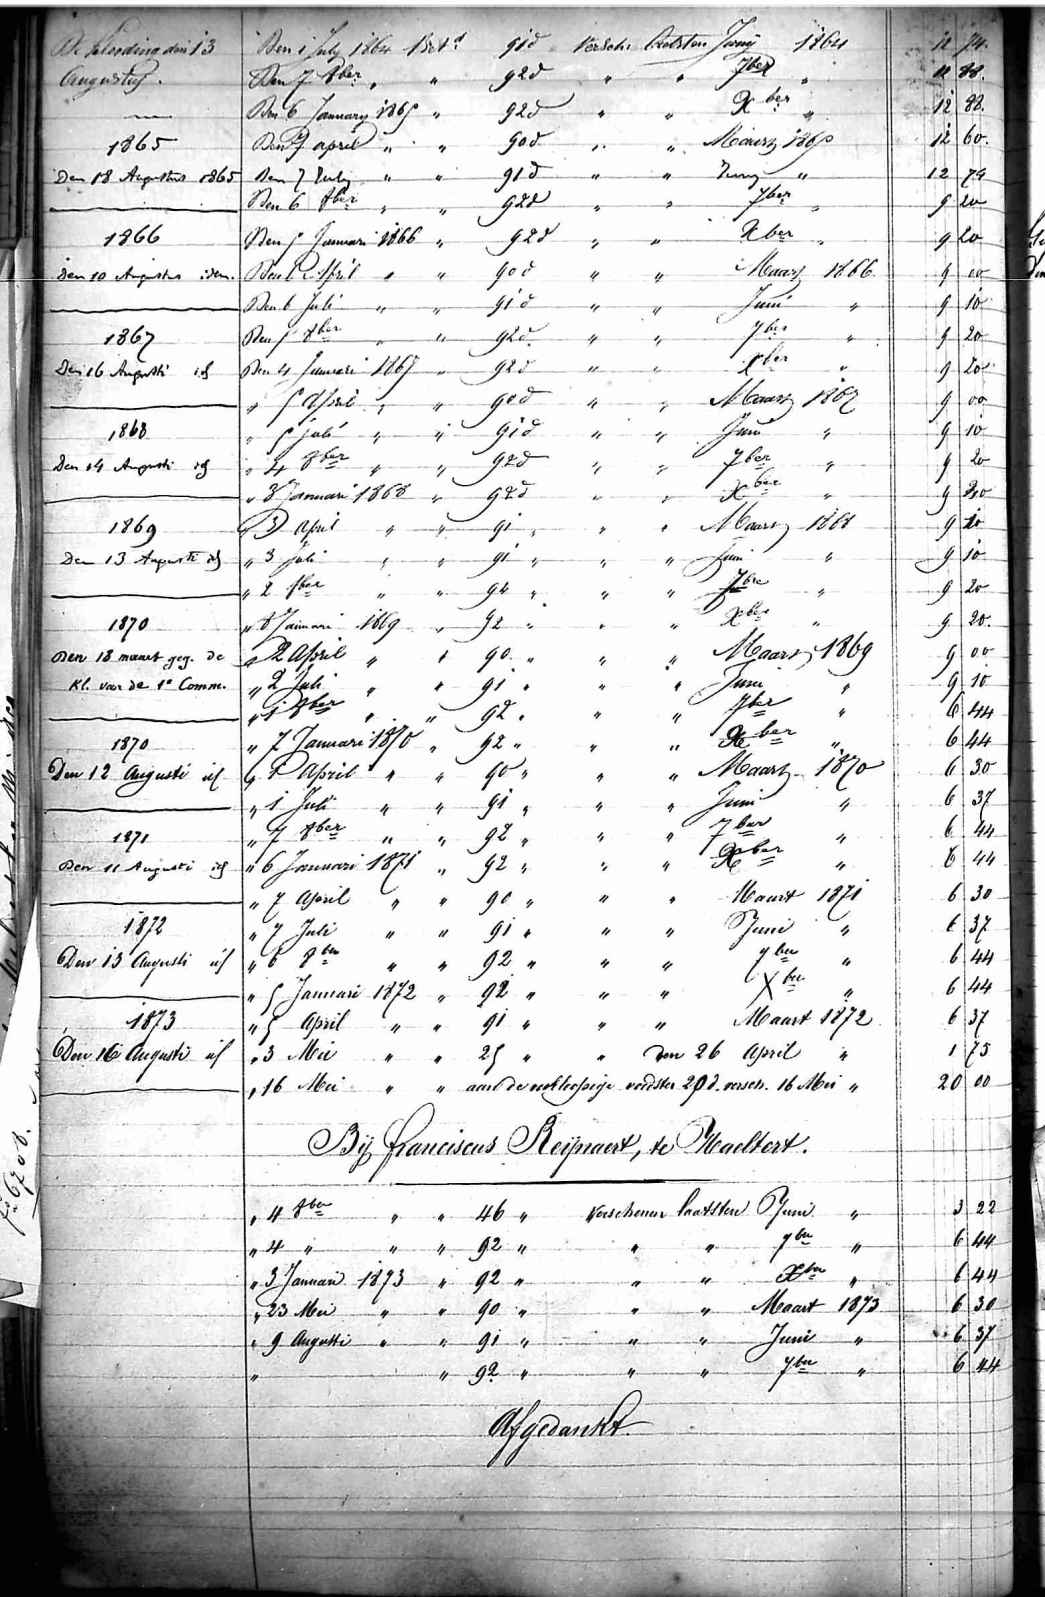 De kleeding den 13 Den 1 July 1864 Bet.d 91d versch: laatsten Juny 1864 12 74.
Augusty. Den 7 8ber „ „ 92d „ „ 7ber „ 12 88.
Den 6 January 1865 „ 92d „ „ Xber „ 12 88.
1865 Den 7 april „ „ 90d „ „ Maart 1865 12 60.
Den 18 Augustus 1865 Den 7 July „ „ 91d „ „ Juny „ 12 74
Den 6 8ber „ „ 92d „ „ 7ber „ 9 20
1866 Den 5 Januari 1866 „ 92d „ „ Xber „ 9 20
Den 10 Augustus idem. Den 6 April „ „ 90d „ „ Maart 1866 9 00
Den 6 Juli „ „ 91d „ „ Juni „ 9 10
1867 Den 5 8ber „ „ 92d. „ „ 7ber „ 9 20
Den 16 Augusti id Den 4 Januari 1867 „ 92d „ „ Xber „ 9 20
„ 5 April „ „ 90d „ „ Maart 1867 9 00
1868 „ 5 juli „ „ 91d „ „ Juni „ 9 10
Den 14 Augusti id „ 4 8ber „ „ 92d „ „ 7ber „ 9 20
„ 3 Januari 1868 „ 92d „ „ Xber „ 9 20
1869 „ 3 April „ „ 91 „ „ „ Maart 1868 9 10
Den 13 Augusti id „ 3 Juli „ „ 91 „ „ „ Juni „ 9 10
„ 2 8ber „ „ 92 „ „ „ 7ber „ 9 20
1870 „ 8 Januari 1869 „ 92 „ „ „ Xber „ 9 20.
Den 18 maart geg. de „ 2 April „ „ 90. „ „ „ Maart 1869 9 00
Kl. van de 1e Comm. „ 2 Juli „ „ 91 „ „ „ Juni „ 9 10
„ 1 8ber „ „ 92 „ „ „ 7ber „ 6 44
1870 „ 7 Januari 1870 „ 92 „ „ „ Xber „ 6 44
Den 12 Augusti id „ 1 April „ „ 90 „ „ „ Maart 1870 6 30
„ 1 Juli „ „ 91 „ „ „ Juni „ 6 37
1871 „ 7 8ber „ „ 92 „ „ „ 7ber „ 6 44
Den 11 Augusti id „ 6 Januari 1871 „ 92 „ „ „ Xber „ 6 44
„ 7 April „ „ 90 „ „ „ Maart 1871 6 30
1872 „ 7 Juli „ „ 91 „ „ „ Juni „ 6 37
Den 13 Augusti id „ 6 8ber „ „ 92 „ „ „ 7ber „ 6 44
„ 5 Januari 1872 „ 92 „ „ „ Xber „ 6 44
1873 „ 5 April „ „ 91 „ „ „ Maart 1872 6 37
Den 16 Augusti id „ 3 Mei „ „ 25 „ „ den 26 April „ 1 75
„ 16 Mei „ „ aan de voedster 20d. versch. 16 Mei „ 20 00
Bij Franciscus Reijnaert, te Maeltert.
„ 4 8ber „ „ 46 „ verschenen laatsten Juni „ 3 22
„ 4 „ „ „ 92 „ „ „ 7ber „ 6 44
„ 3 Januari 1873 „ 92 „ „ „ Xber „ 6 44
„ 23 Mei „ „ 90 „ „ „ Maart 1873 6 30
„ 9 Augusti „ „ 91 „ „ „ Juni „ 6 37
„ „ 92 „ „ „ 7ber „ 6 44
Afgedankt.